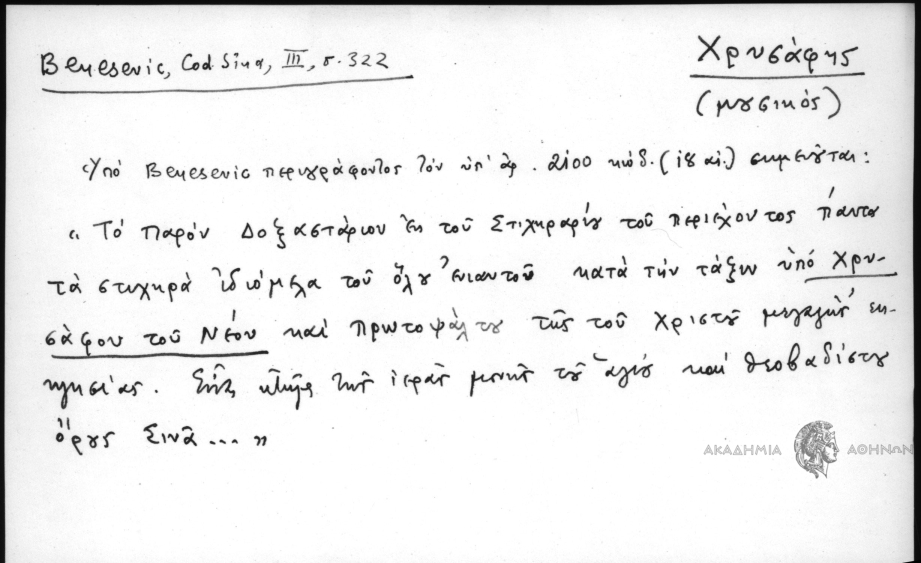 Benesevic, Cod Sina, III, σ. 322
Χρυσάφης
(μουσικός)
Ὑπό Benesevic περιγράφοντος τόν ὑπ' ἀρ. 2100 κώδ. (ιδ αἰ.) σημειοῦται:
«Τό παρόν Δοξαστάριον ἐκ τοῦ Στιχηραρίου τοῦ περιέχοντος πάντα
τὰ στιχηρὰ ἰδιόμελα τοῦ ὅλου ἐνιαυτοῦ κατὰ τὴν τάξιν ὑπό Χρυ-
σάφου τοῦ Νέου καί πρωτοψάλτου τῆς τοῦ Χριστοῦ μεγάλης ἐκ-
κλησίας. τῆς ἱερᾶς μονῆς τοῦ ἁγίου καί θεοβαδίστου
ὄρους Σινᾶ...»
ΑΚΑΔΗΜΙΑ ΑΘΗΝΩΝ